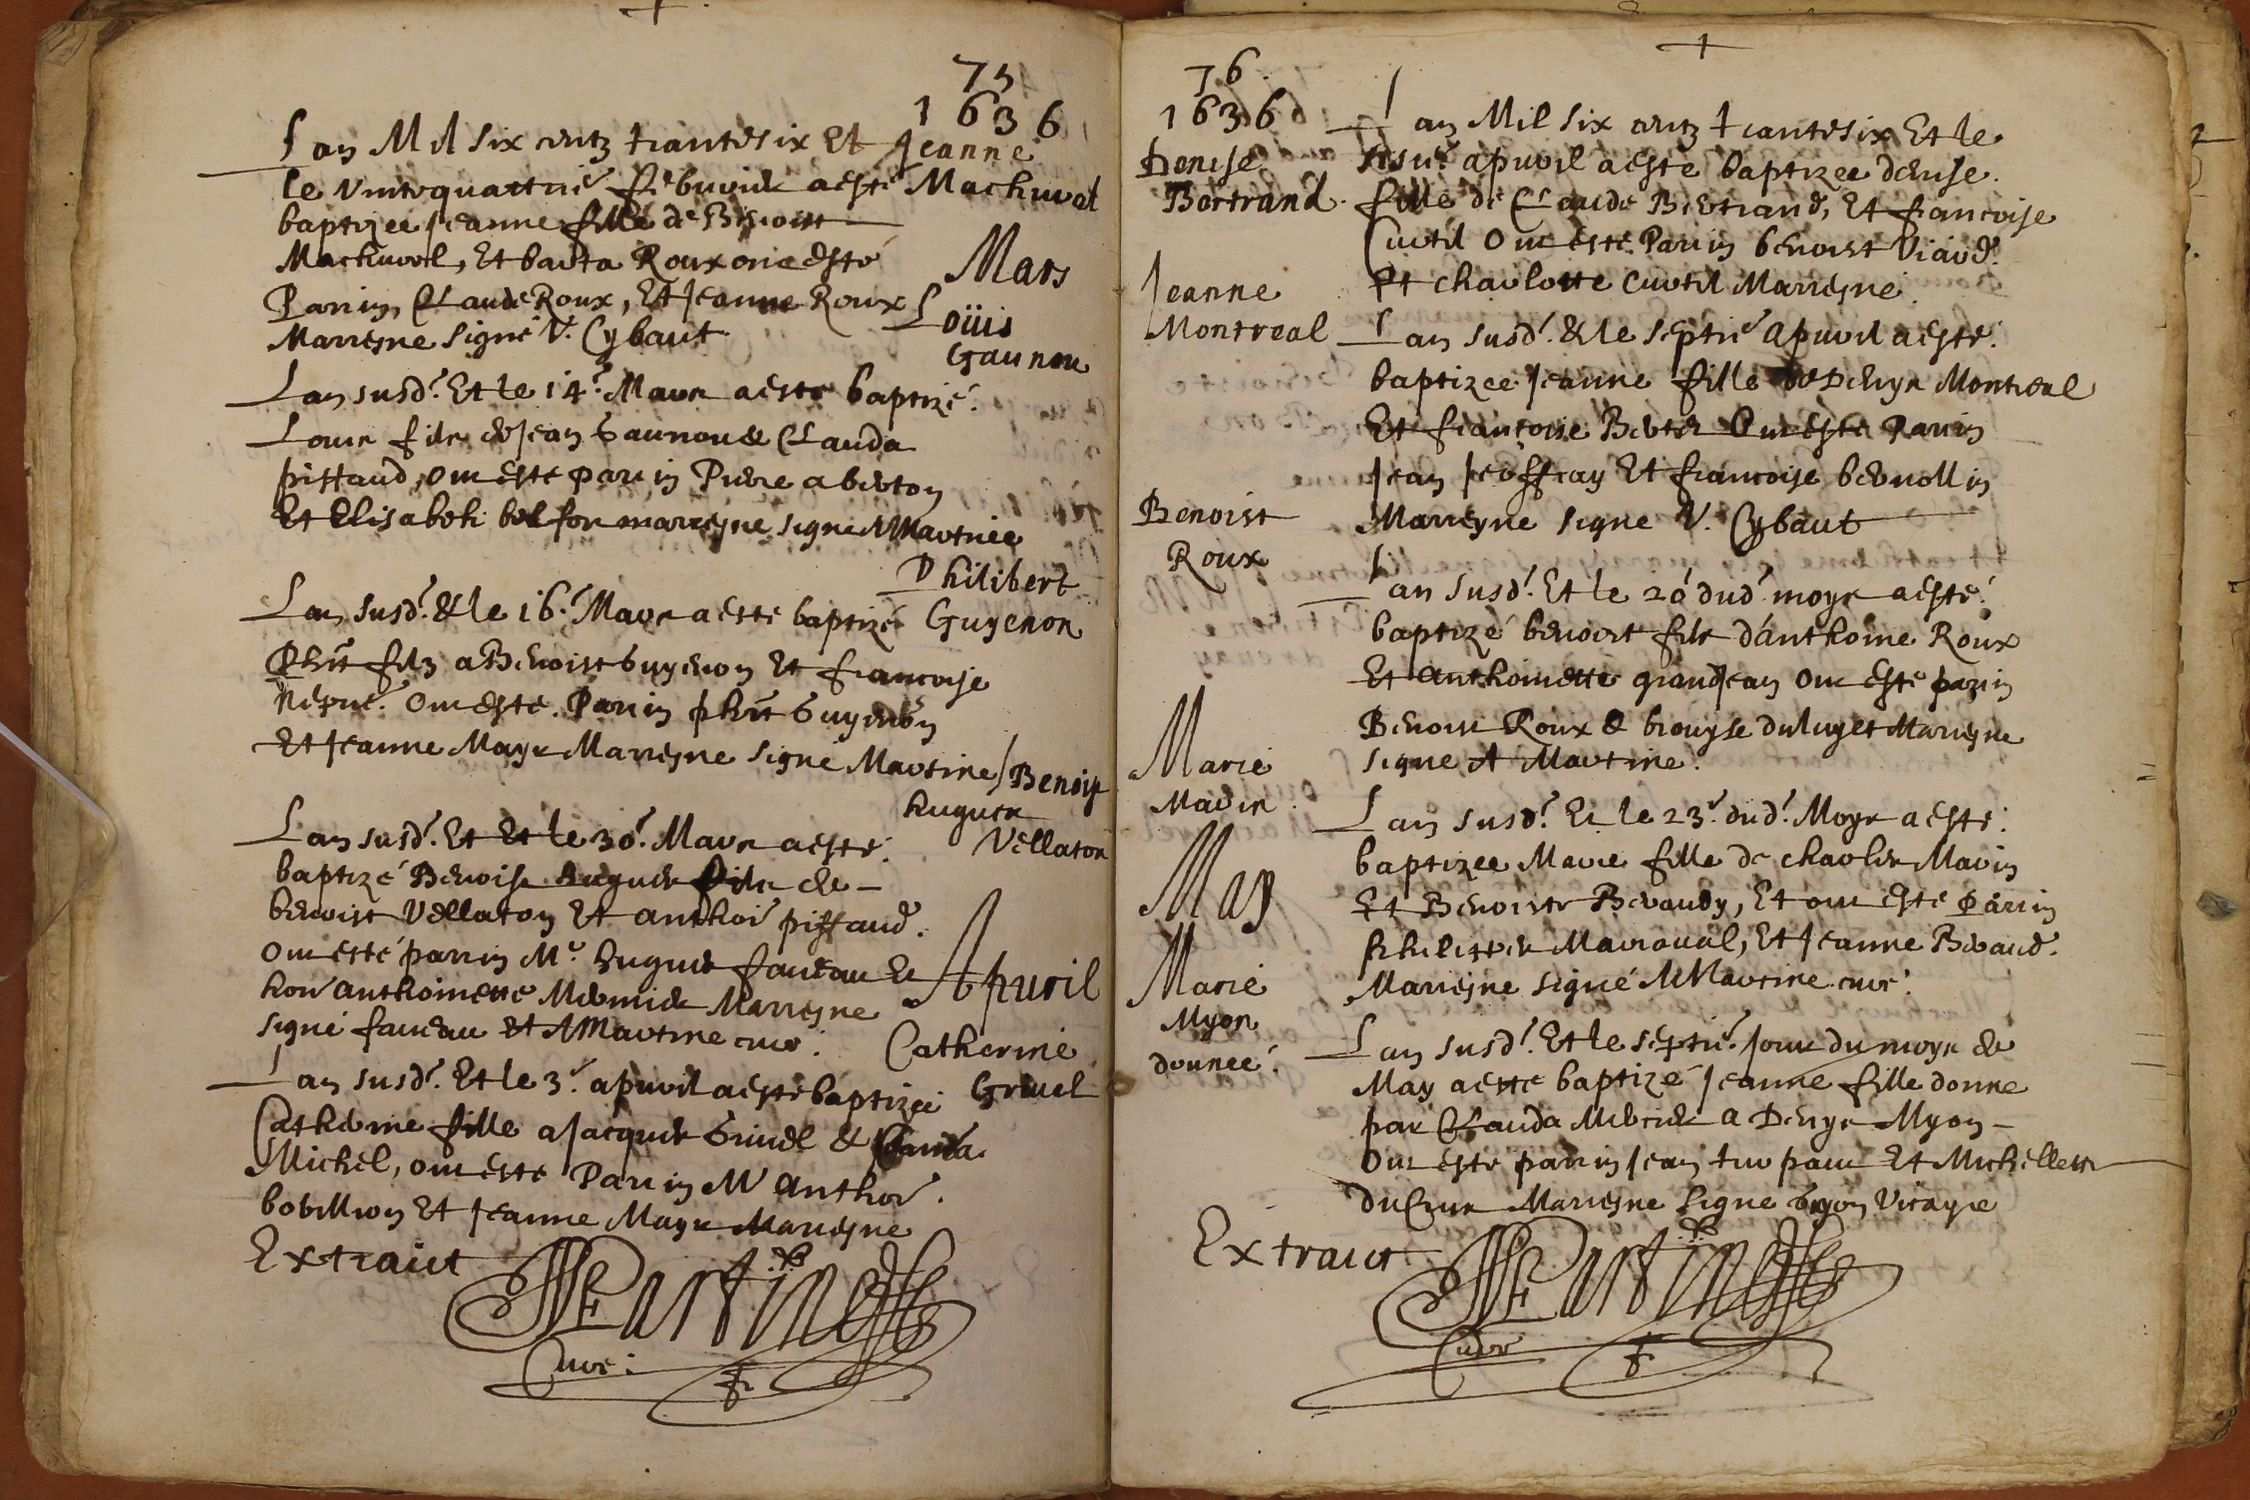 75
1636
Lan Mil six centz trantesix Et
le vintequattrie febvrier a esté
baptizee Jeanne fille de Benoist
Machurel, Et Roux
Parrin Claude Roux, Et Jeanne Roux
Marreyne signé V. Cybaut
Jeanne
Machurel
Mars
Lan susd. Et le 14e Mars a esté baptizé
Louis filz de Jean Gaunon & Clauda
piffaud, ont esté parrin Pierre aberton
Et Elisabeth marreyne signé AMartine
Loüis
Gaunon
Lan susd. & le 16e Mars a esté baptizé
Phït filz a Benoist Guyenon Et francoise
ont esté Parrin phït Guyenon
Et Jeanne Mayr Marreyne signé Martine
Philibert
Guyenon
Lan susd. Et Et le 30e Mars a esté
baptizé Benoist hugues filz de
benoist Vellaton Et anthoi piffaud.
Ont esté parrin Me hugues faveau Et
hon anthoinette Mermier Marreyne
signé faveau Et AMartine curé
Benoist
hugues
Vellaton
Apuril
Lan susd. Et le 3e apuril a esté baptizee
Catherine fille a Jacques Griuel & Clauda
Michel, ont esté Parrin M anthoi
bobillion Et Jeanne Mayr Marreyne
Catherine
Griuel
Extraict
Martine
Curé
76
1636
Lan Mil six centz trantesix Et le
apuril a esté baptizee denise
fille de Claude Bertrand, Et francoise
Curtil Ont esté Parrin benoist Viaud
Et charlotte Curtil Marreyne
Denise
Bertrand
Lan susd. & le septie apuril a esté
baptizee Jeanne fille de Denys Montreal
Et francoise Berter Ont esté Parrin
Jean Jeoffray Et francoise bernollin
Marreyne signe V. Cybaut
Jeanne
Montreal
Lan susd. Et le 20e dud. moys a esté
baptizé benoist filz d'anthoine Roux
Et anthoinette grandjean Ont esté parrin
Benoist Roux & duluyet Marreyne
signe A Martine
Benoist
Roux
Lan susd. Et le 23e dud. Moys a esté
baptizee Marie fille de charles Marin
Et Benoiste Beraudy, Et ont esté Parrin
philippes Marraual, Et Jeanne Beraud
Marreyne signé AMartine curé
Marie
Marin
May
Lan susd. Et le septie Jour du moys de
May a esté baptizé Jeanne fille donne
par Clauda Mercier a Denys Myon
Ont esté parrin Jean Et Michellette
duCrux Marreyne signe Guyon Vicaire
Marie
Myon
donnee
Extraict
Martine
Curé